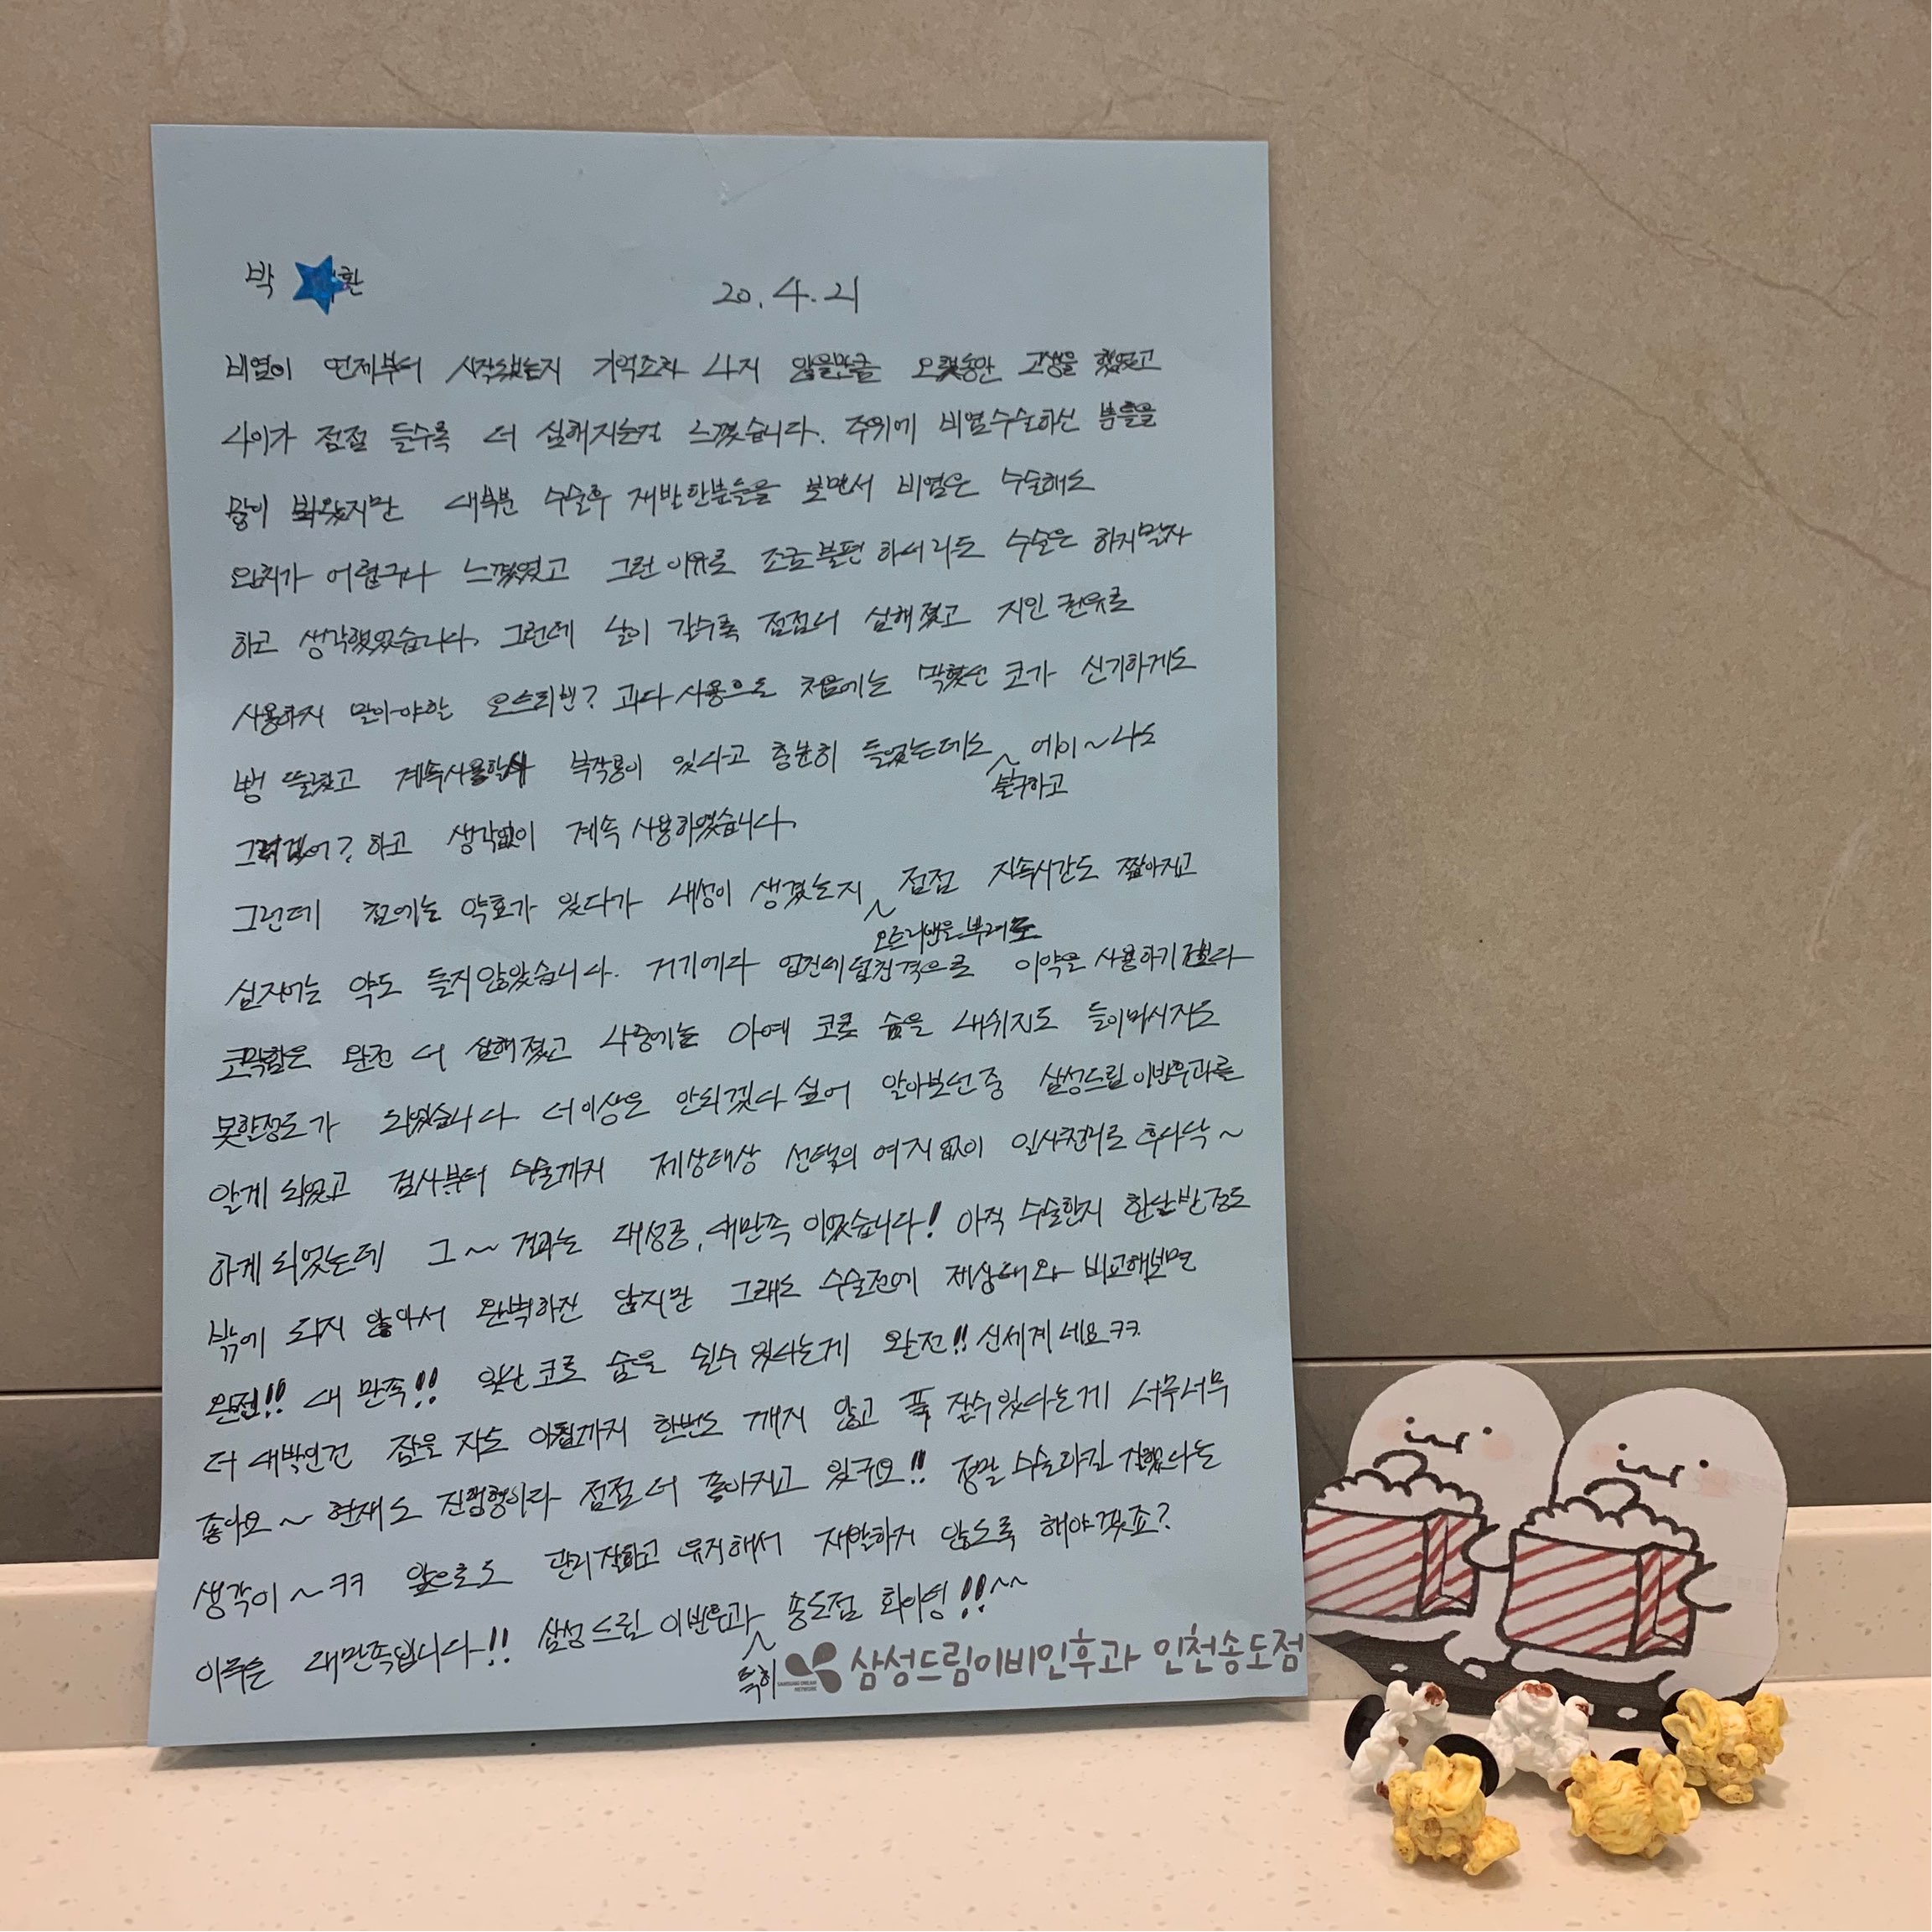 박 환
20.4.21
비염이 언제부터 시작됐는지 기억조차 나지 않을만큼 오랫동안 고생을 했었고
나이가 점점 들수록 더 심해지는걸 느꼈습니다. 주위에 비염수술하신 분들을
많이 봐왔지만 대부분 수술후 재발한분들을 보면서 비염은 수술해도
완치가 어렵구나 느꼈었고 그런 이유로 조금 불편 하더라도 수술은 하지말자
하고 생각했었습니다. 그런데 날이 갈수록 점점더 심해졌고 지인 권유로
사용하지 말아야할 오트리빈? 과다사용으로 처음에는 막혔던 코가 신기하게도
뻥 뚫렸고 계속사용할시 부작용이 있다고 충분히 들었는데도 에이~나도
불구하고
그러겠어? 하고 생각없이 계속 사용하였습니다.
그런데 첨에는 약효가 있다가 내성이 생겼는지 점점 지속시간도 짧아지고
오트리빈을 뿌려도
심지어는 약도 듣지않았습니다. 거기에다 업친데덥친격으로 이약을 사용하기전보다
코막힘은 완전 더 심해졌고 나중에는 아예 코로 숨을 내쉬지도 들이마시지도
못할정도가 되었습니다. 더이상은 안되겠다 싶어 알아보던중 삼성드림이비인후과를
알게 되었고 검사부터 수술까지 제상태상 선택의 여지없이 일사천리로 후다닥~
하게 되었는데 그~~ 결과는 대성공, 대만족 이었습니다! 아직 수술한지 한달반정도
밖에 되지 않아서 완벽하진 않지만 그래도 수술전에 제상태와 비교해보면
완전!! 대 만족!! 일단 코로 숨을 쉴수 있다는게 완전!! 신세계네요ㅋㅋ
더 대박인건 잠을 자도 아침까지 한번도 깨지 않고 푹 잘수있다는게 너무너무
좋아요~ 현재도 진행형이라 점점 더 좋아지고 있구요!! 정말 수술하길 잘했다는
생각이~ㅋㅋ 앞으로도 관리잘하고 유지해서 재발하지 않도록 해야겠죠?
이루는 대만족입니다!! 삼성드림 이비인후과 송도점 화이팅!!~~
특히
SAMSUNG DREAM NETWORK 삼성드림이비인후과 인천송도점